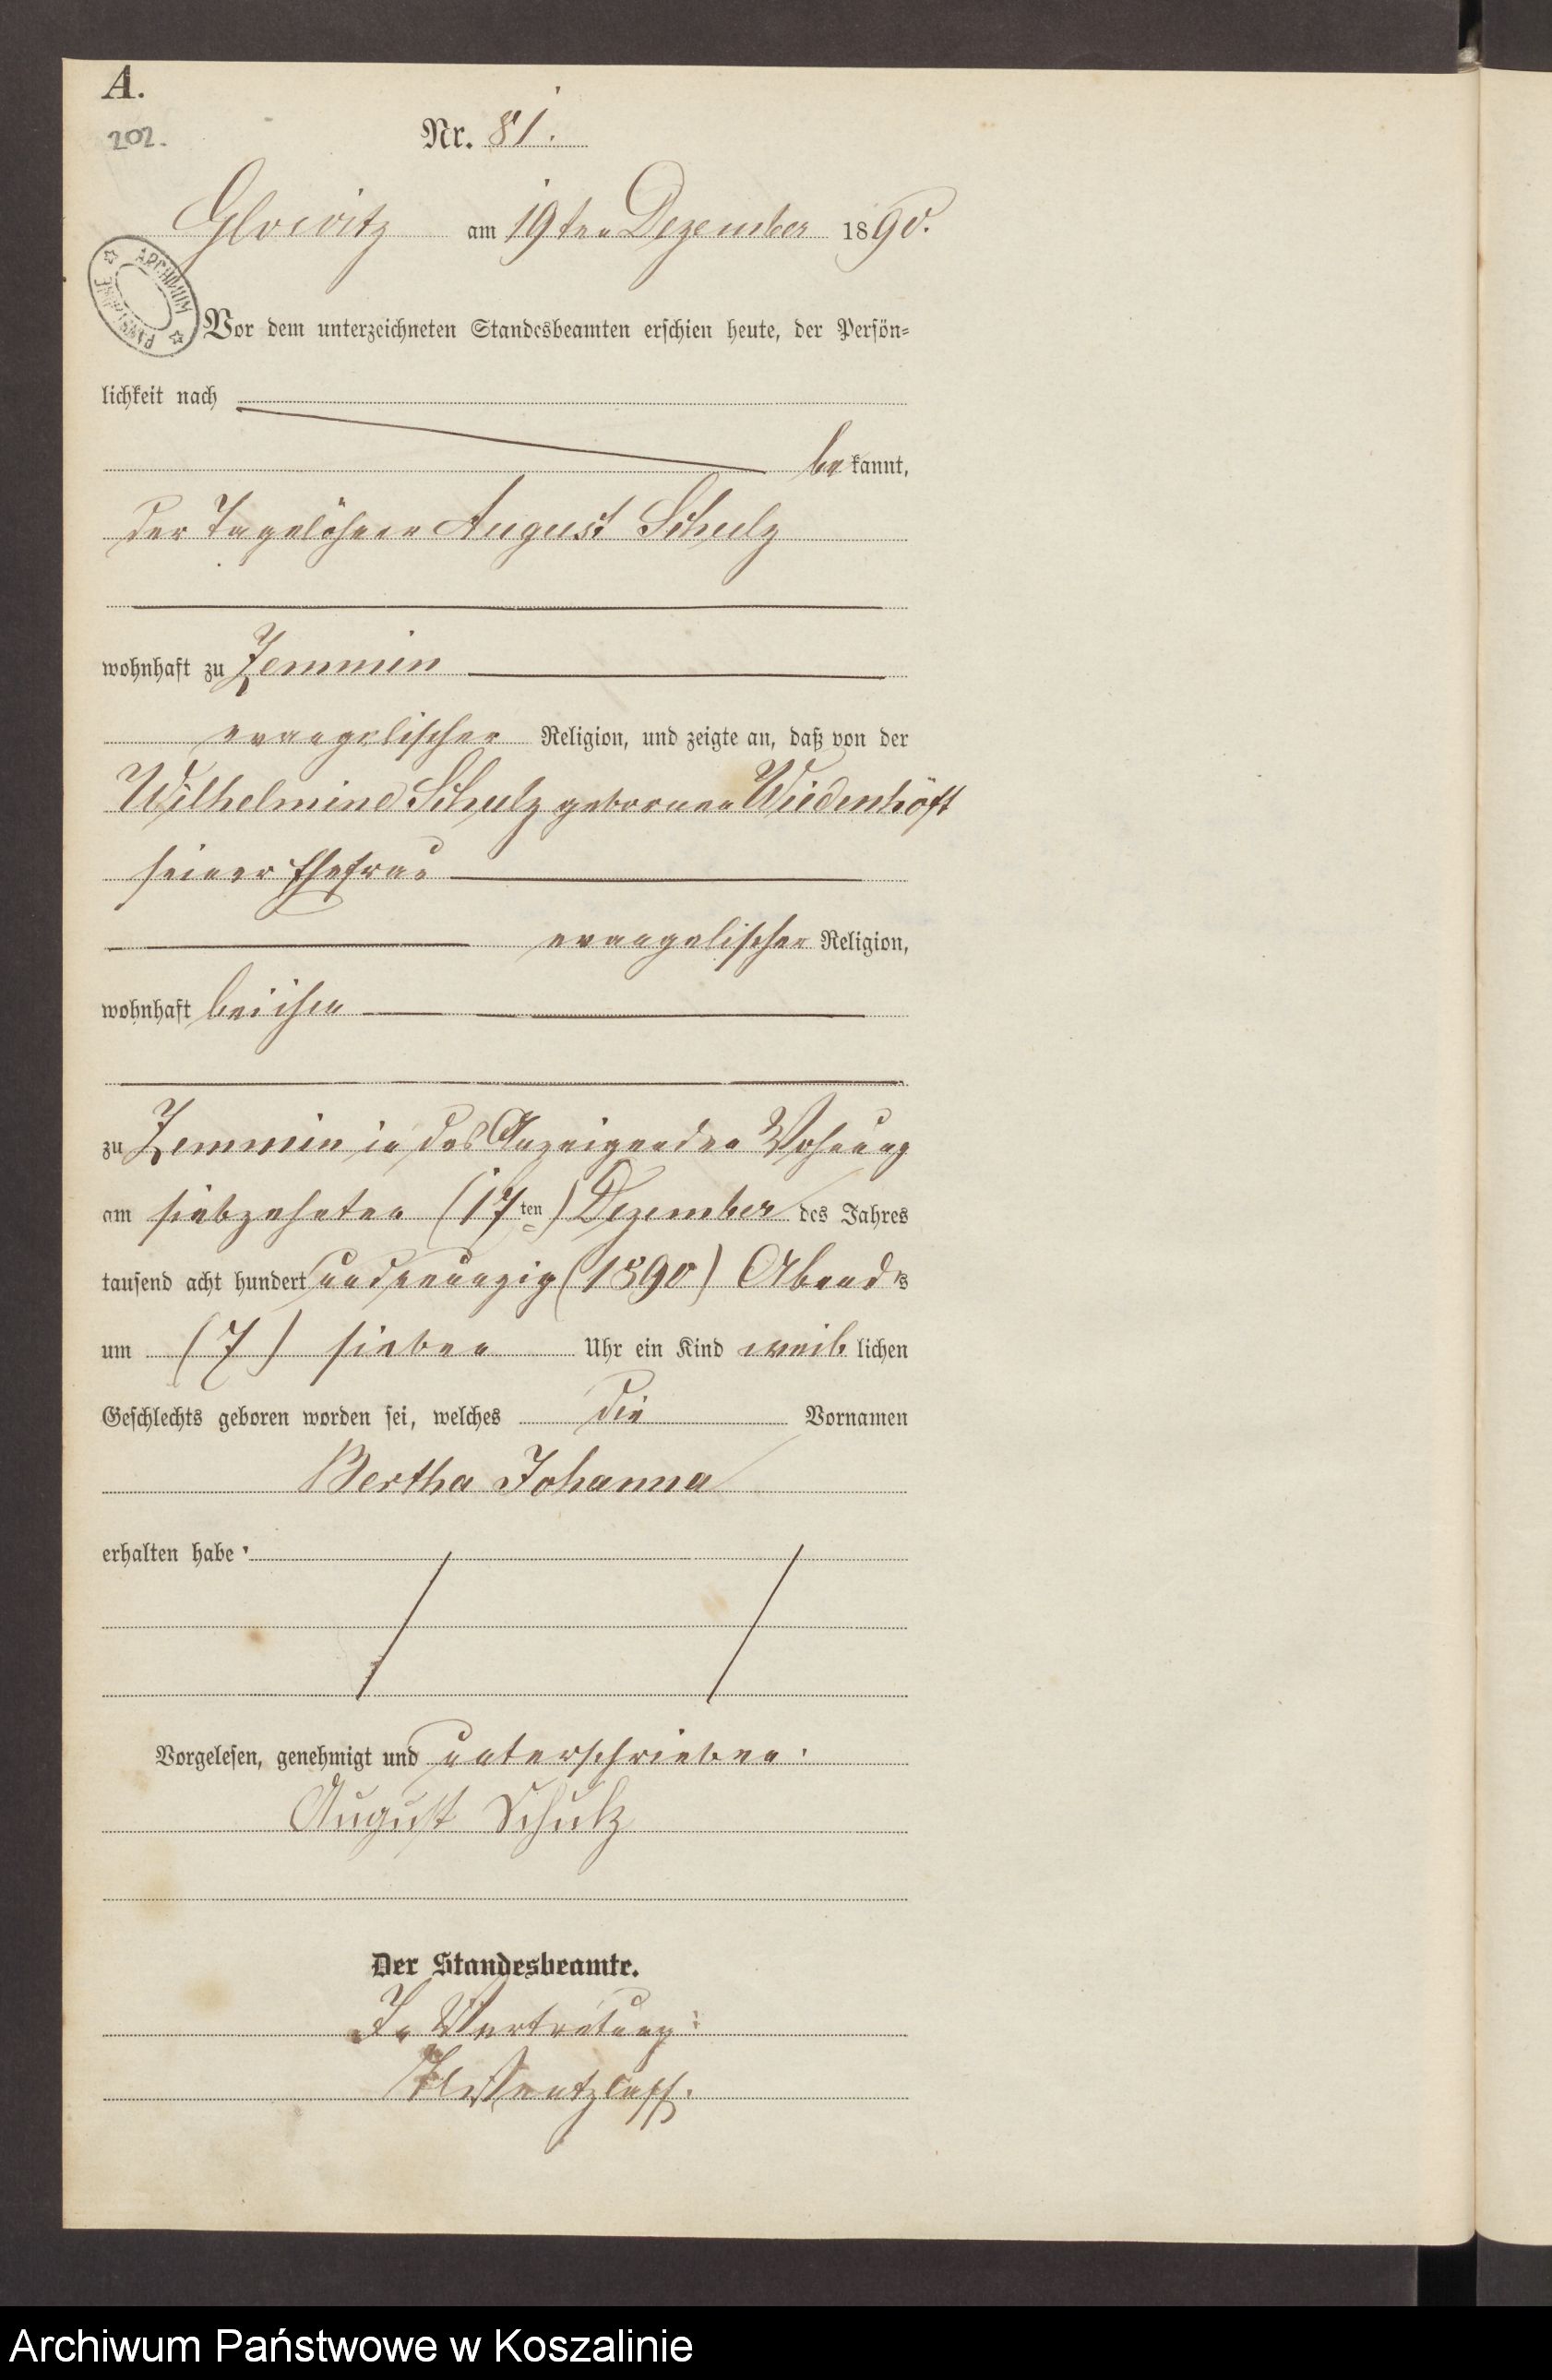 A.
202.
Nr. 81.
Glowitz am 19ten Dezember 1890.
ARCHIWUM PAŃSTWOWE
Vor dem unterzeichneten Standesbeamten erschien heute, der Persön-
lichkeit nach
be kannt,
der Tagelöhner August Schulz
wohnhaft zu Zemmin
evangelischer Religion, und zeigte an, daß von der
Wilhelmine Schulz geborenen Wiedenhöft
seiner Ehefrau
evangelischer Religion,
wohnhaft bei ihm
zu Zemmin in des Anzeigenden Wohnung
am siebzehnten (17ten) Dezember des Jahres
tausend acht hundert und neunzig (1890) Abends
um (7) sieben Uhr ein Kind weib lichen
Geschlechts geboren worden sei, welches die Vornamen
Bertha Johanna
erhalten habe.
Vorgelesen, genehmigt und unterschrieben:
August Schulz
Der Standesbeamte.
In Vertretung:
Archiwum Państwowe w Koszalinie